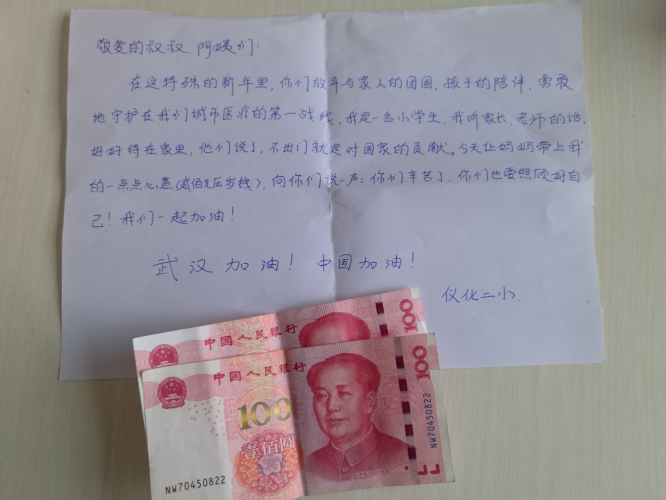 敬爱的叔叔、阿姨们:
在这特殊的新年里,你们放弃与家人的团圆,孩子的陪伴,勇敢
地守护在我们城市医疗的第一战线,我是一名小学生,我听家长、老师的话,
好好待在家里,他们说了,不出门就是对国家的贡献。今天让妈妈带上我
的一点点心意(贰佰元压岁钱),向你们说一声:你们辛苦了,你们也要照顾好自
己!我们一起加油!
武汉加油!中国加油!
仪化二小.
中国人民银行
100
中国人民银行
100
100
壹佰圆
NW70450822
NW70450822